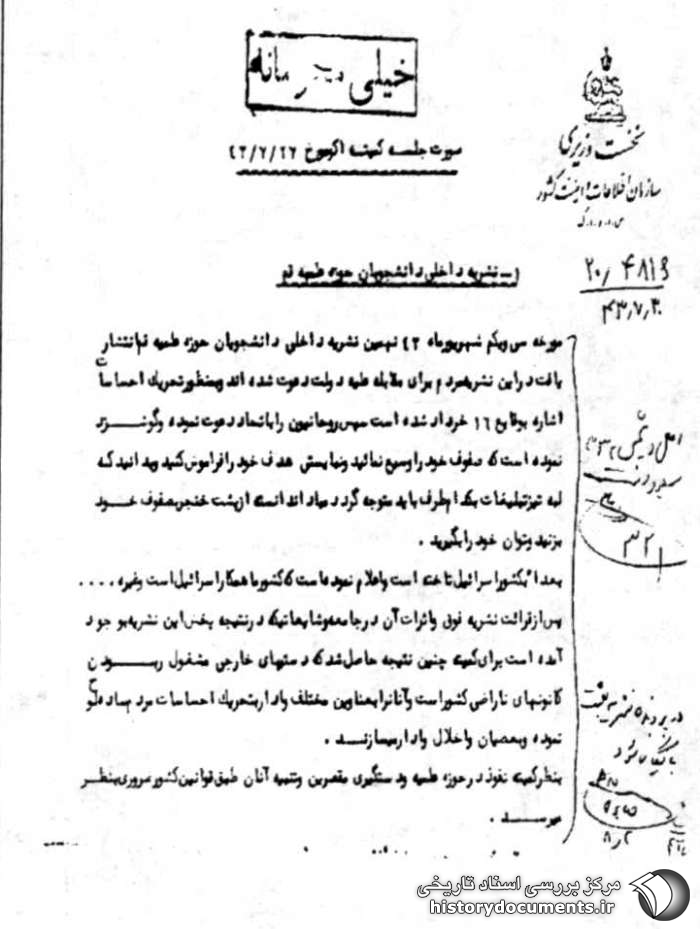 خیلی محرمانه
نخست وزیری
سازمان اطلاعات و امنیت کشور
س.ا.و.ا.ک
صورت جلسه کمیته اکیموخ ۴۳/۷/۲۲
۲۰/۴۸۱۶
۴۳،۷،۳۰
۱- نشریه داخلی دانشجویان حوزه علمیه قم
مورخه سی ویکم شهریورماه ۴۳ نهمین نشریه داخلی دانشجویان حوزه علمیه قم انتشار
یافت در این نشریه مردم برای مقابله علیه دولت دعوت شده اند و بمنظور تحریک احساسات
اشاره بوقایع ۱۶ خرداد شده است سپس روحانیون را باتحاد دعوت نموده و گوشزد
نموده است که صفوف خود را وسیع نمائید و نبایستی هدف خود را فراموش کنید و بدانید که
لبه تیز تبلیغات بکدام طرف باید متوجه گردد مبادا ندانسته از پشت خنجر بصفوف خود
بزنید و توان خود را بگیرید .
بعداً بکشور اسرائیل تاخته است و اعلام نموده است که کشور ما همکار اسرائیل است و غیره ....
پس از قرائت نشریه فوق و اثرات آن در جامعه و شایعاتیکه در نتیجه پخش این نشریه بوجود
آمده است برای کمیته چنین نتیجه حاصل شد که دستهای خارجی مشغول ربودن
کانونهای ناراضی کشور است و آنانرا بعناوین مختلف وادار بتحریک احساسات مردم ساده لو
نموده و بعصیان و اخلال وادار میسازند .
بنظر کمیته نفوذ در حوزه علمیه و دستگیری مقصرین و تنبیه آنان طبق قوانین کشور ضروری بنظر
میرسد .
۳۲۱
در پرونده نشریه
بایگانی شود
مرکز بررسی اسناد تاریخی
historydocuments.ir